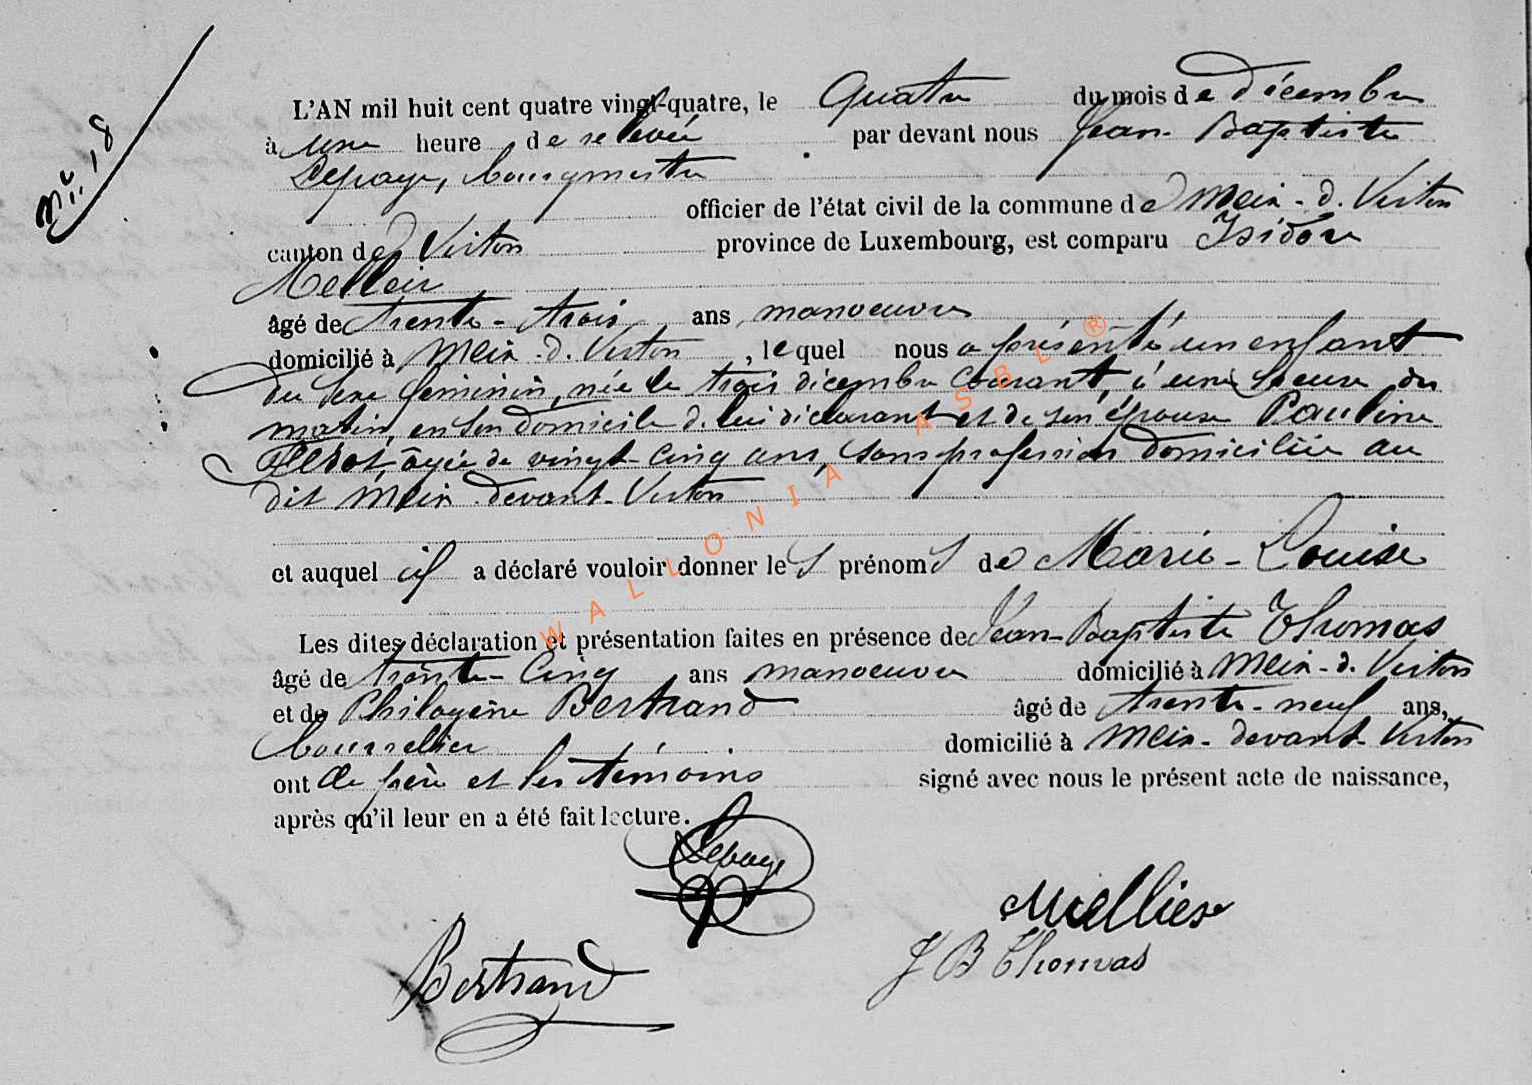 N° 18
L'AN mil huit cent quatre vingt-quatre, le Quatre du mois de décembre
à une heure de relevée par devant nous Jean-Baptiste
Lepage, bourgmestre
officier de l'état civil de la commune de Meix-d. Virton
canton de Virton province de Luxembourg, est comparu Isidore
Mellier
âgé de trente-trois ans, manoeuvre
domicilié à Meix-d. Virton, lequel nous a présenté un enfant
du sexe féminin, née le trois décembre courant, à une heure du
matin, en son domicile de lui déclarant et de son épouse Pauline
âgée de vingt-cinq ans, sans profession domiciliée au
dit Meix-devant-Virton
et auquel il a déclaré vouloir donner les prénoms de Marie-Louise
Les dites déclaration et présentation faites en présence de Jean-Baptiste Thomas
âgé de trente-cinq ans manoeuvre domicilié à Meix-d. Virton
et de Philogène Bertrand âgé de trente-neuf ans,
bourrelier domicilié à Meix-devant-Virton
ont le père et les témoins signé avec nous le présent acte de naissance,
après qu'il leur en a été fait lecture.
Lepage
Mellier
J B Thomas
Bertrand
WALLONIA ASBL ®